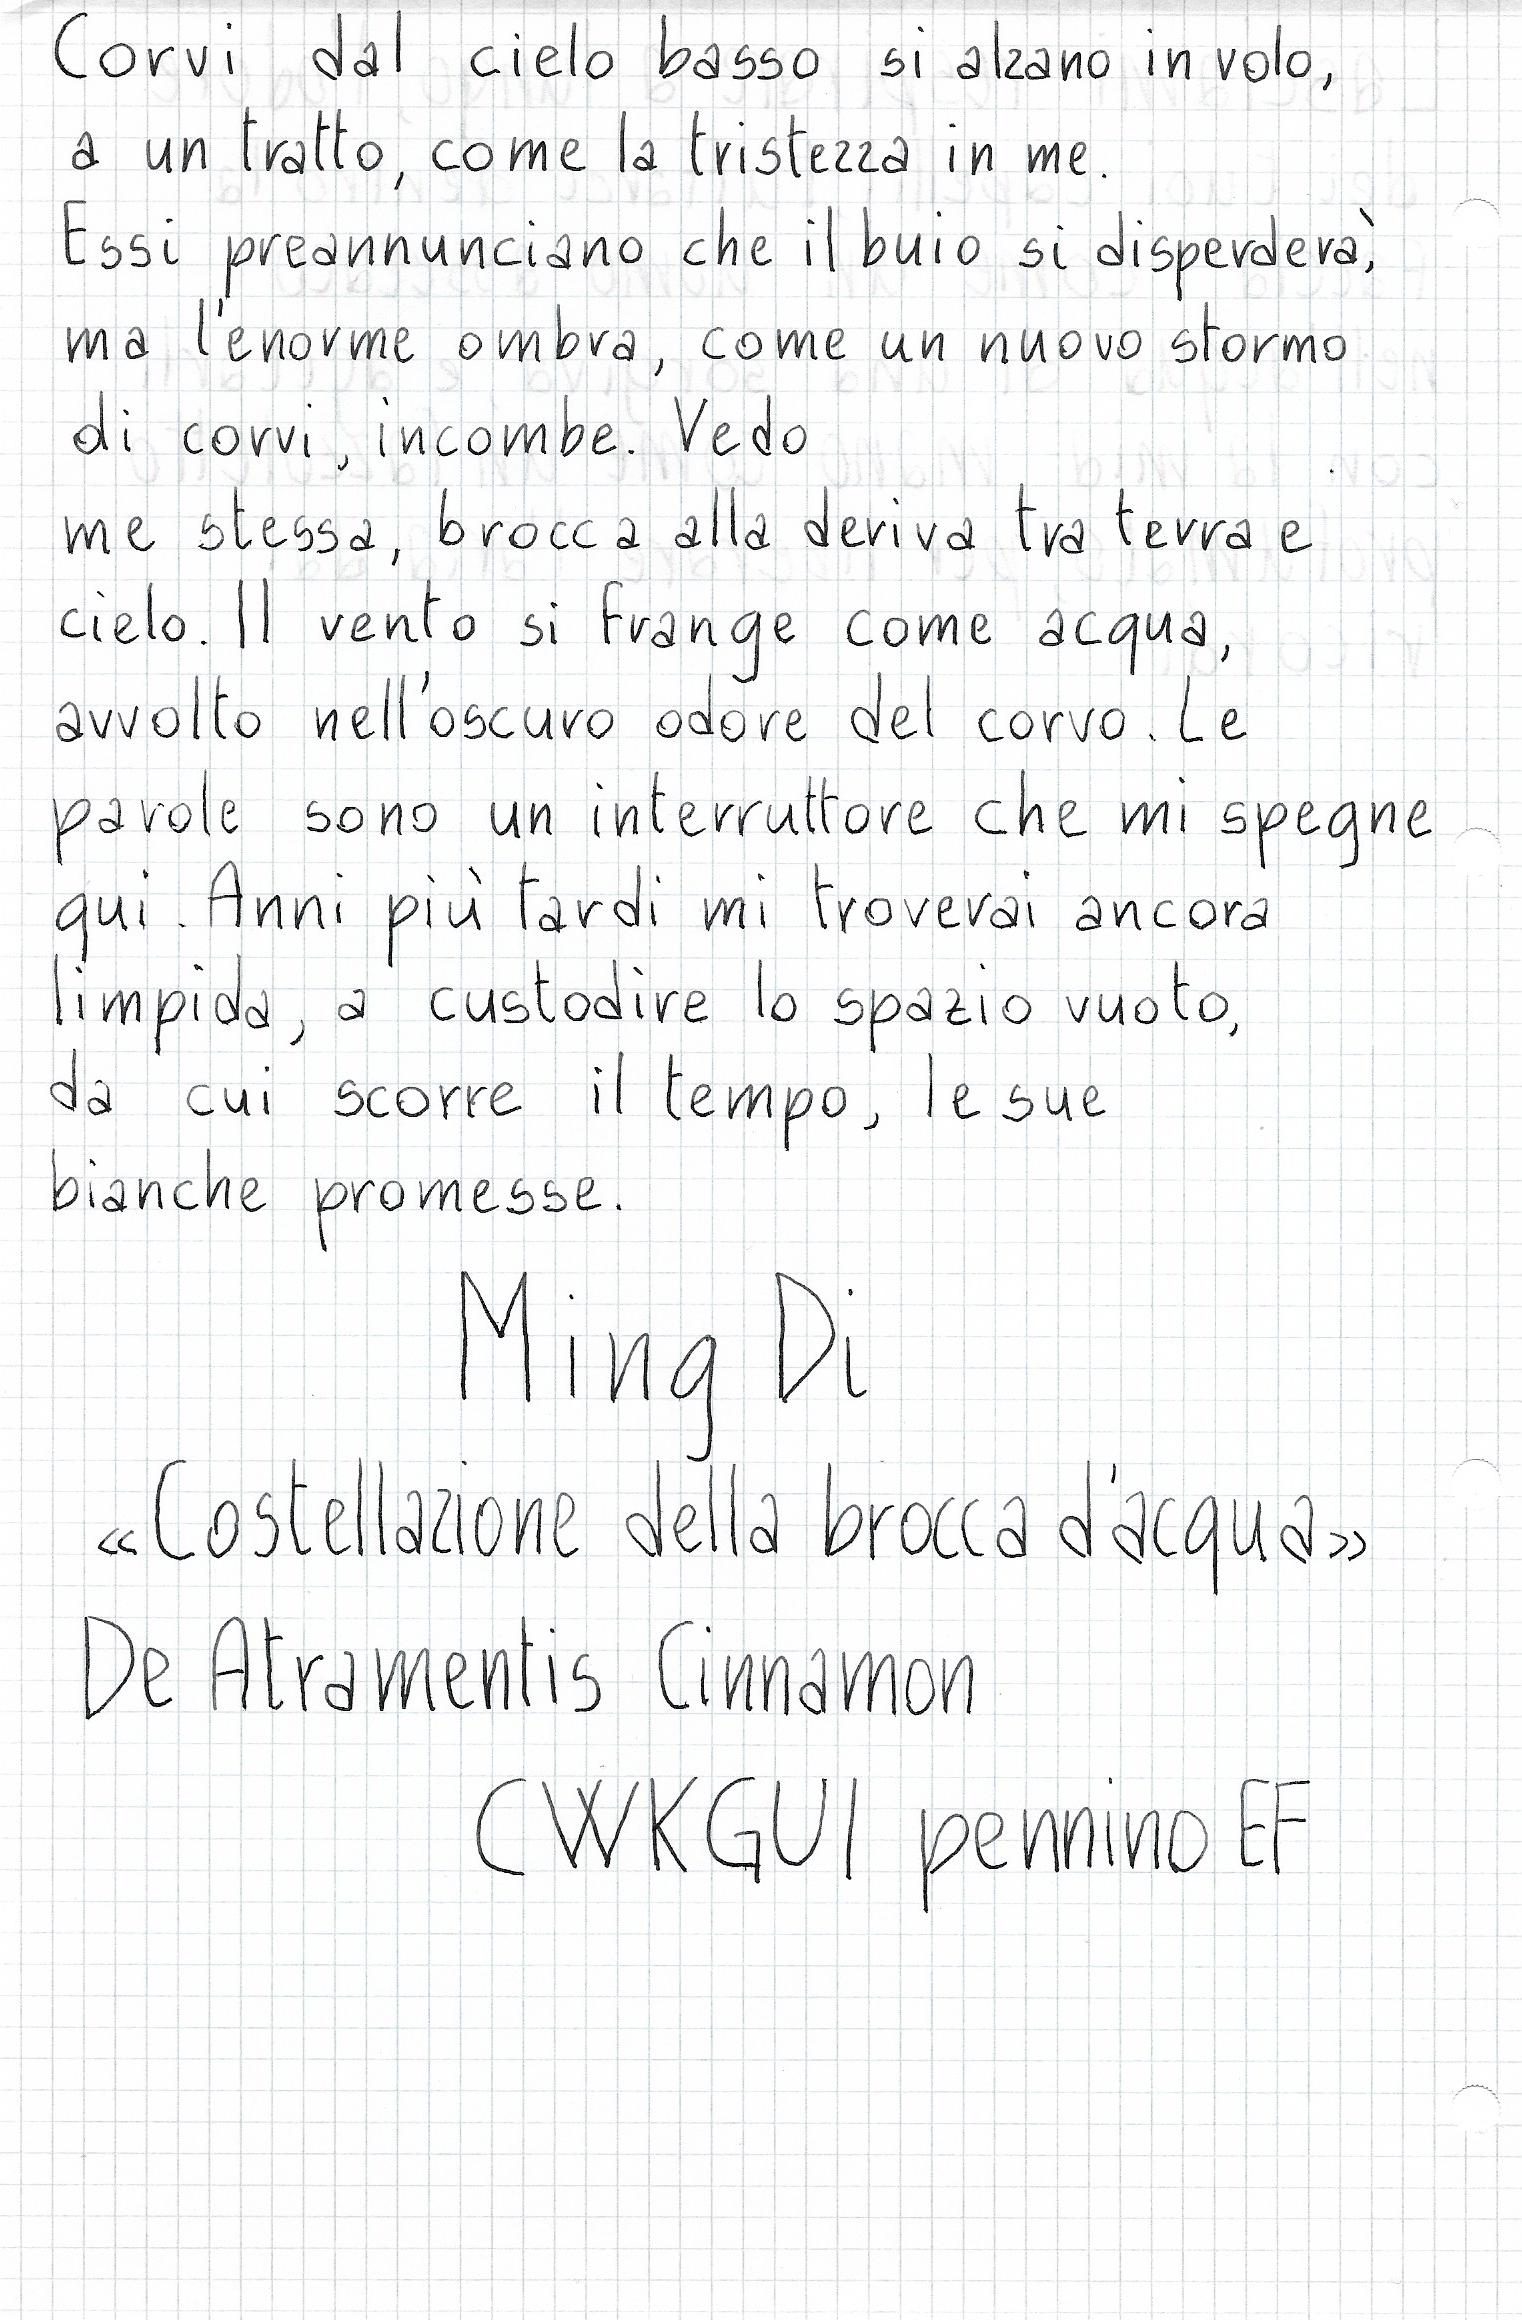 Corvi dal cielo basso si alzano in volo,
a un tratto, come la tristezza in me.
Essi preannunciano che il buio si disperderà,
ma l'enorme ombra, come un nuovo stormo
di corvi, incombe. Vedo
me stessa, brocca alla deriva tra terra e
cielo. Il vento si frange come acqua,
avvolto nell'oscuro odore del corvo. Le
parole sono un interruttore che mi spegne
qui. Anni più tardi mi troverai ancora
limpida, a custodire lo spazio vuoto,
da cui scorre il tempo, le sue
bianche promesse.
Ming Di
«Costellazione della brocca d'acqua»
De Atramentis Cinnamon
CWKGUI pennino EF